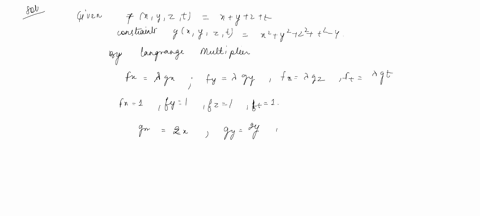 Sol
Given f(x, y, z, t) = x+y+z+t
constraint g(x, y, z, t) = x²+y²+z²+t²-4
By langrange multiplier
fx = λgx ; fy = λgy , fz = λgz , ft = λgt
fx=1 , fy=1 , fz=1 , ft=1.
gx = 2x , gy = 2y ,